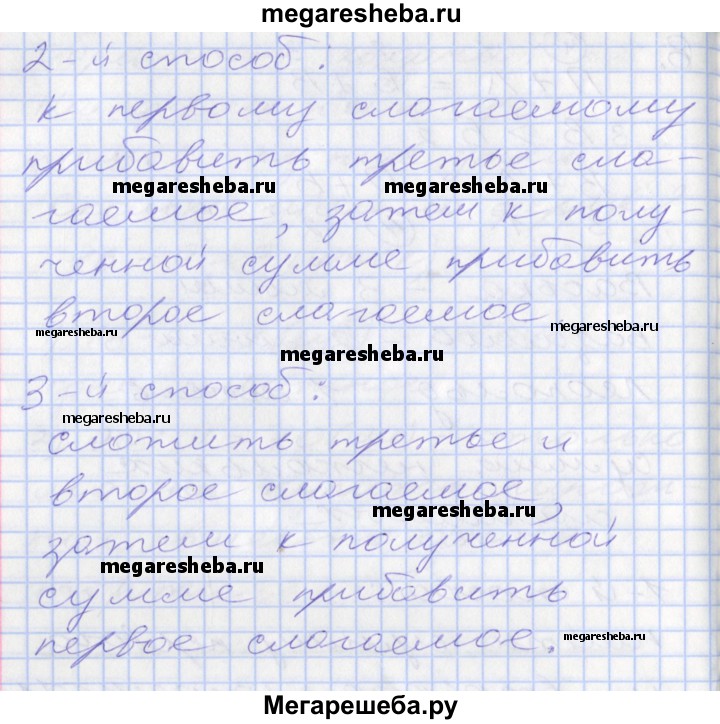 megaresheba.ru
2-й способ:
к первому слагаемому
прибавить третье сла-
megaresheba.ru megaresheba.ru
гаемое, затем к полу-
ченной сумме прибавить
второе слагаемое.
megaresheba.ru megaresheba.ru
megaresheba.ru
3-й способ:
megaresheba.ru
сложить третье и
второе слагаемое,
megaresheba.ru
затем к полученной
megaresheba.ru
сумме прибавить
первое слагаемое.
megaresheba.ru
Мегарешеба.ру